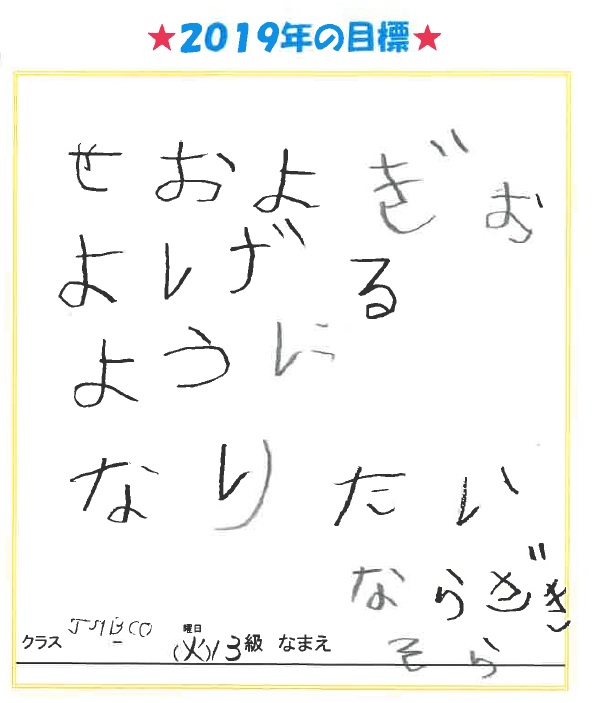 ★2019年の目標★
せおよぎお
よしげる
ように
なりたい
ならざき
そら
クラス 曜日(火)13級 なまえ